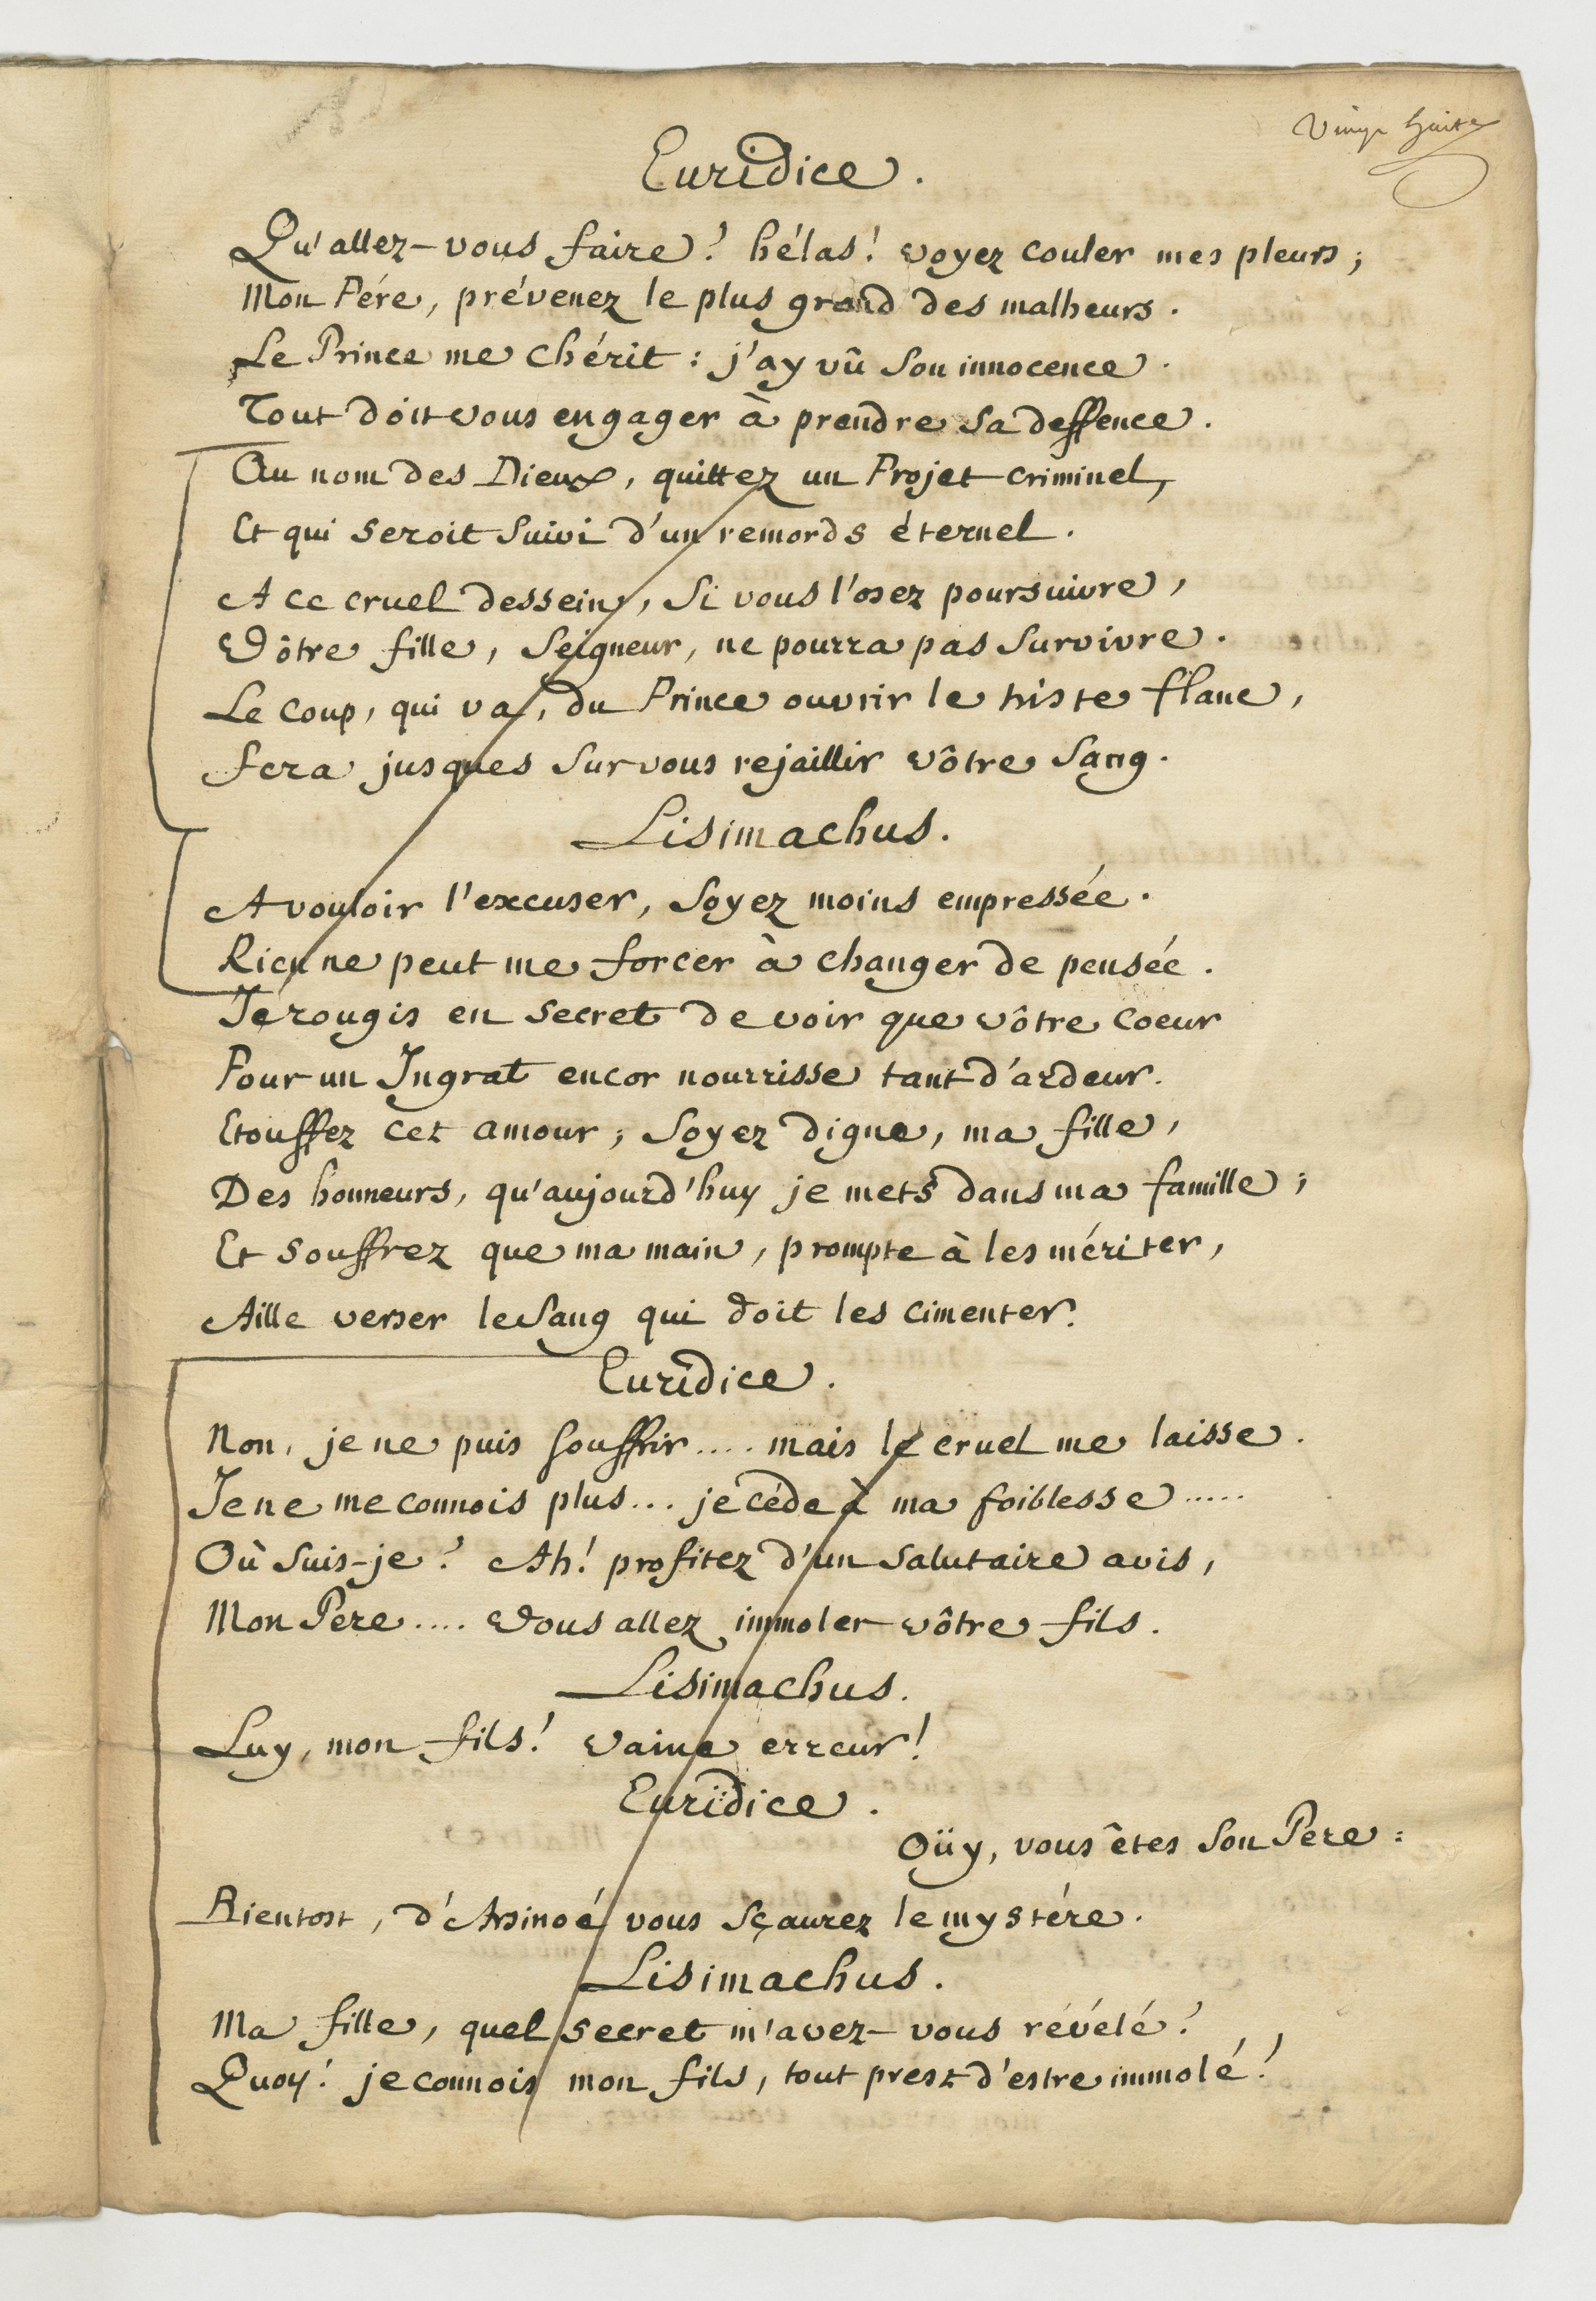 Vingt huit
Euridice.
Qu'allez-vous faire? hélas! voyez couler mes pleurs;
Mon Pére, prévenez le plus grand des malheurs.
Le Prince me chérit: j'ay vû son innocence.
Tout doit vous engager à prendre sa deffence.
Au nom des Dieux, quittez un Projet criminel,
Et qui seroit suivi d'un remords éternel.
A ce cruel dessein, si vous l'osez poursuivre,
Vôtre fille, Seigneur, ne pourra pas survivre.
Le coup, qui va, du Prince ouvrir le triste flanc,
Fera jusques sur vous rejaillir vôtre sang.
Lisimachus.
A vouloir l'excuser, soyez moins empressée.
Rien ne peut me forcer à changer de pensée.
Je rougis en secret de voir que vôtre coeur
Pour un Ingrat encor nourrisse tant d'ardeur.
Etouffez cet amour; soyez digne, ma fille,
Des honneurs, qu'aujourd'huy je mets dans ma famille;
Et souffrez que ma main, prompte à les mériter,
Aille verser le sang qui doit les cimenter.
Euridice.
Non, je ne puis souffrir.... mais le cruel me laisse.
Je ne me connois plus... je céde à ma foiblesse.....
Où suis-je? Ah! profitez d'un salutaire avis,
Mon Pere.... Vous allez immoler vôtre fils.
Lisimachus.
Luy, mon fils! Vaine erreur!
Euridice.
Oüy, vous êtes son Pere:
Bientost, d'Arsinoé vous sçaurez le mystére.
Lisimachus.
Ma fille, quel secret m'avez-vous révélé?
Quoy! je connois mon fils, tout prest d'estre immolé!